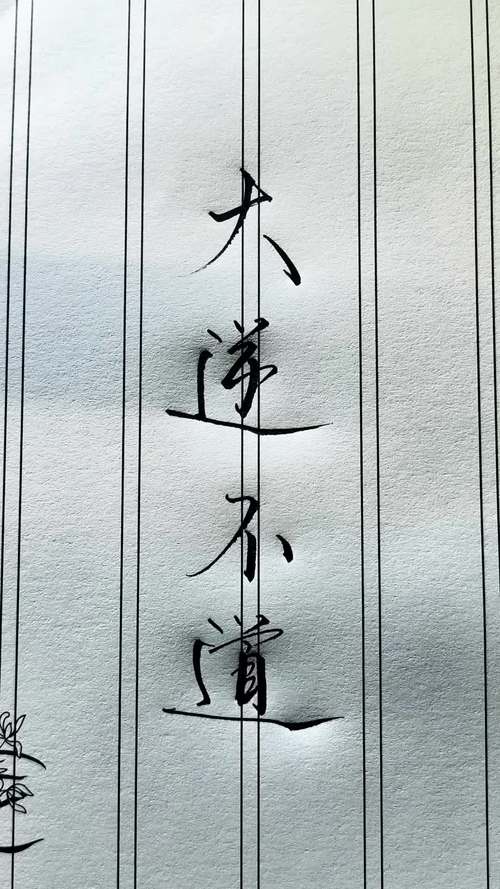 大逆不道